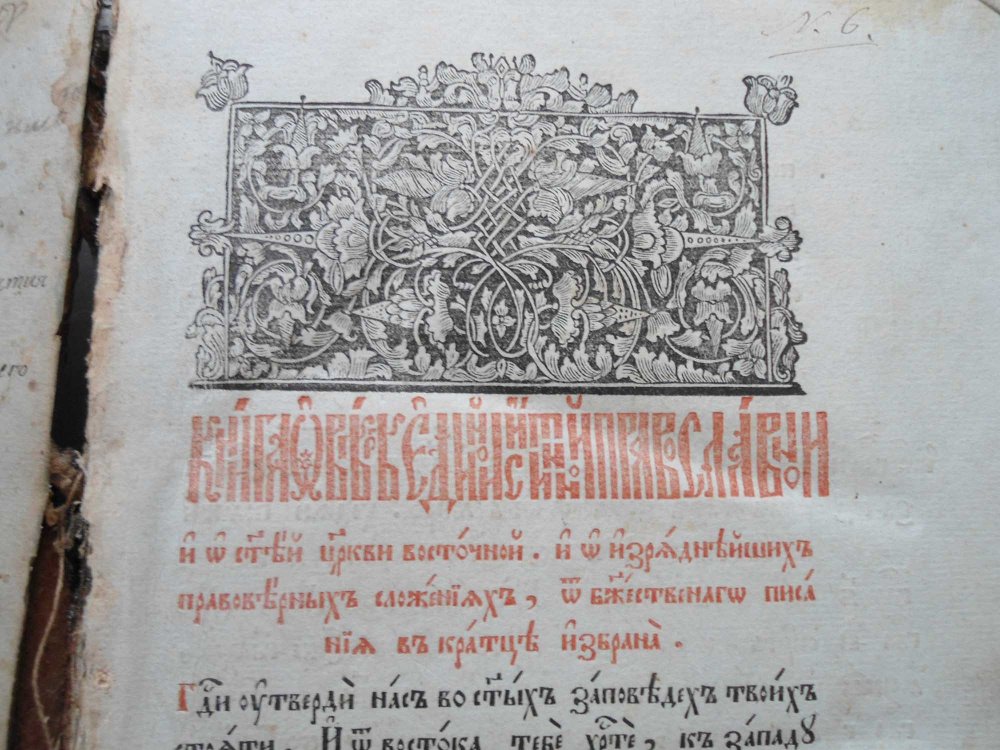 N. 6.
КНИ́ГА Ѡ҆ ВѢ́РѢ Є҆ДИ́НОЙ И҆́СТИННОЙ ПРАВОСЛА́ВНОЙ
и҆ ѡ҆ ст҃ѣ́й цр҃кви восто́чной. и҆ ѡ҆ и҆зрѧ́днѣйшихъ
правовѣ́рныхъ сложе́нїѧхъ, ѿ бж҃е́ственагѡ писа́
нїѧ въ кра́тцѣ и҆збрана̀.
Гдⷭ҇и ᲂу҆твердѝ на́съ во ст҃ы́хъ за́повѣдехъ твои́хъ
стоѧ́ти. И҆ ѿ восто́ка тебѐ хрⷭ҇тѐ, къ за́падꙋ